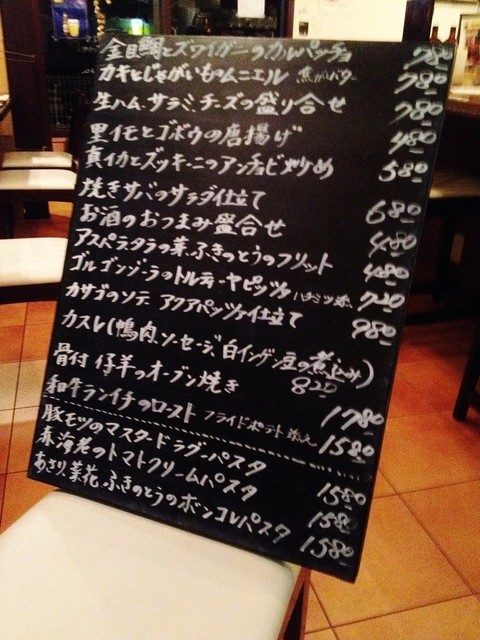 金目鯛とズワイガニのカルパッチョ 780
カキとじゃがいものムニエル 焦がしバター 780
生ハム、サラミ、チーズの盛り合せ 780
里イモとゴボウの唐揚げ 480
真イカとズッキーニのアンチョビ炒め 580
焼きサバのサラダ仕立て 680
お酒のおつまみ盛合せ 480
アスパラ タラの菜 ふきのとうのフリット 480
ゴルゴンゾーラのトルティーヤピッツァ ハチミツ添え 720
カサゴのソテー アクアパッツァ仕立て 980
カスレ(鴨肉、ソーセージ、白インゲン豆の煮込み) 820
骨付仔羊のオーブン焼き 1780
和牛ランイチのロースト フライドポテト添え 1580
豚モツのマスタードラグーパスタ 1580
赤海老のトマトクリームパスタ 1580
あさり、菜花、ふきのとうのボンゴレパスタ 1580